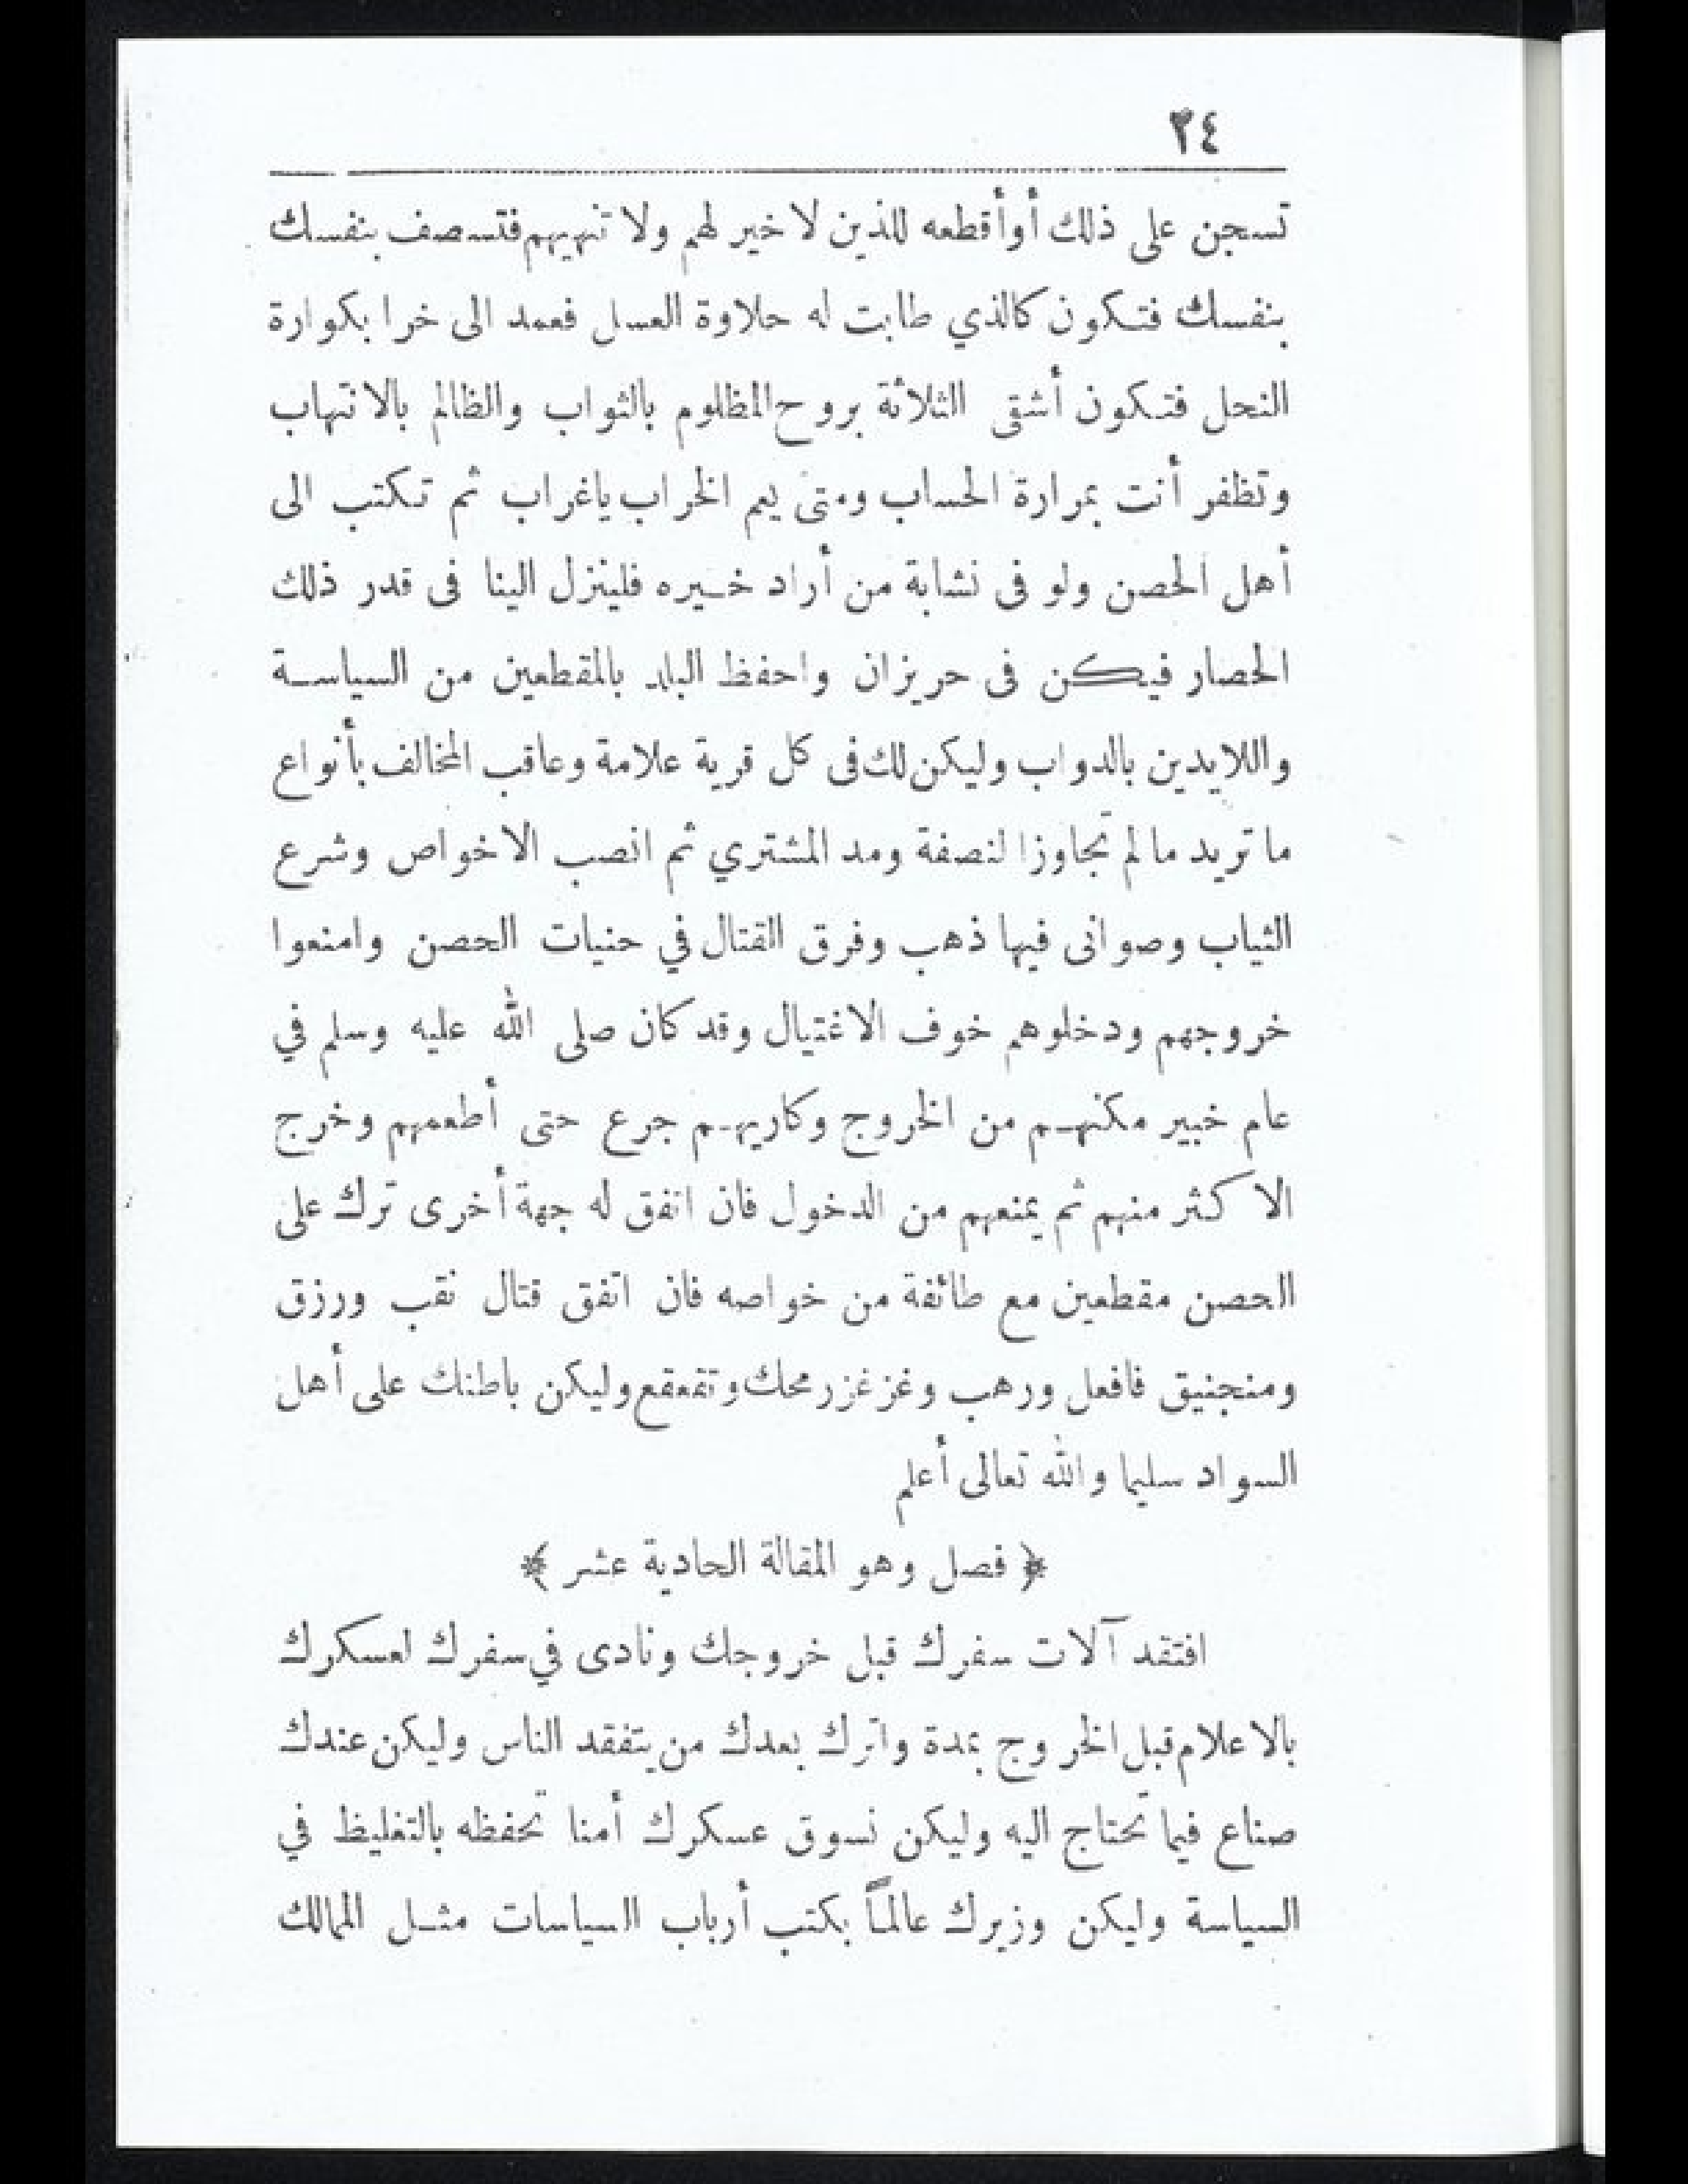 ٣٤
تسجن على ذلك أو أقطعه للذين لا خير لهم ولا تنهيهم فتسصف بنفسك
بنفسك فتكون كالذي طابت له حلاوة العسل فعمد الى خرا بكوارة
النحل فتكون أشقى الثلاثة بروح المظلوم بالثواب والظالم بالانتهاب
وتظفر أنت بمرارة الحساب ومتى يعم الخراب ياغراب ثم تكتب الى
أهل الحصن ولو فى نشابة من أراد خيره فلينزل الينا فى قدر ذلك
الحصار فيكن فى حريزان واحفظ البلد بالمقطعين من السياسة
واللايدين بالدواب وليكن لك فى كل قرية علامة وعاقب المخالف بأنواع
ما تريد مالم تجاوزا لنصفة ومد المشتري ثم انصب الاخواص وشرع
الثياب وصوانى فيها ذهب وفرق القتال في حنيات الحصن وامنعوا
خروجهم ودخلوهم خوف الاغتيال وقد كان صلى الله عليه وسلم في
عام خيبر مكنهم من الخروج وكاريهم جرع حتى أطعمهم وخرج
الاكثر منهم ثم يمنعهم من الدخول فان اتفق له جهة أخرى ترك على
الحصن مقطعين مع طائفة من خواصه فان اتفق قتال نقب ورزق
ومنجنيق فافعل ورهب وغزغز رمحك وتقعقع وليكن باطنك على أهل
السواد سليما والله تعالى أعلم
﴿ فصل وهو المقالة الحادية عشر ﴾
افتقد آلات سفرك قبل خروجك ونادى في سفرك لعسكرك
بالاعلام قبل الخروج بمدة واترك بعدك من يتفقد الناس وليكن عندك
صناع فيما تحتاج اليه وليكن نسوق عسكرك أمنا تحفظه بالتغليظ في
السياسة وليكن وزيرك عالماً بكتب أرباب السياسات مثل الممالك